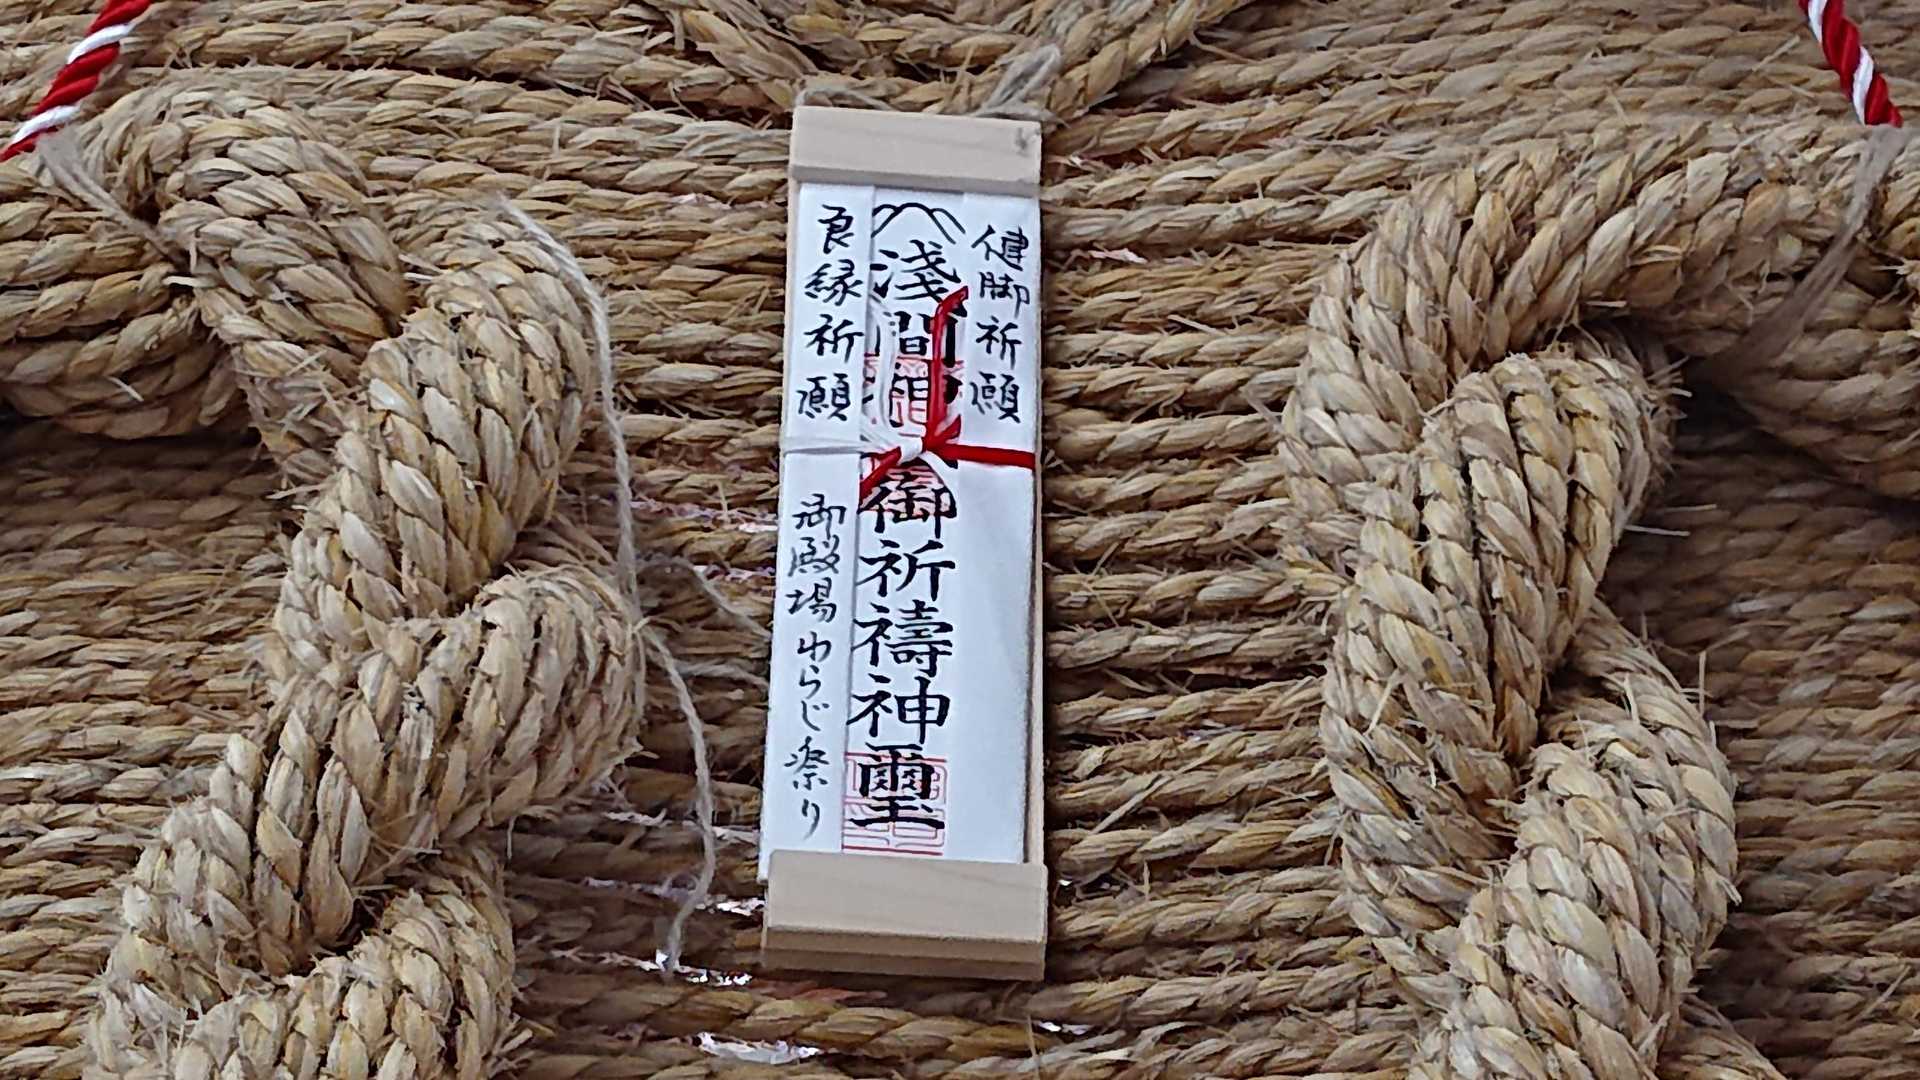 健脚祈願
淺間神社御祈禱神璽
良縁祈願
御殿場わらじ祭り